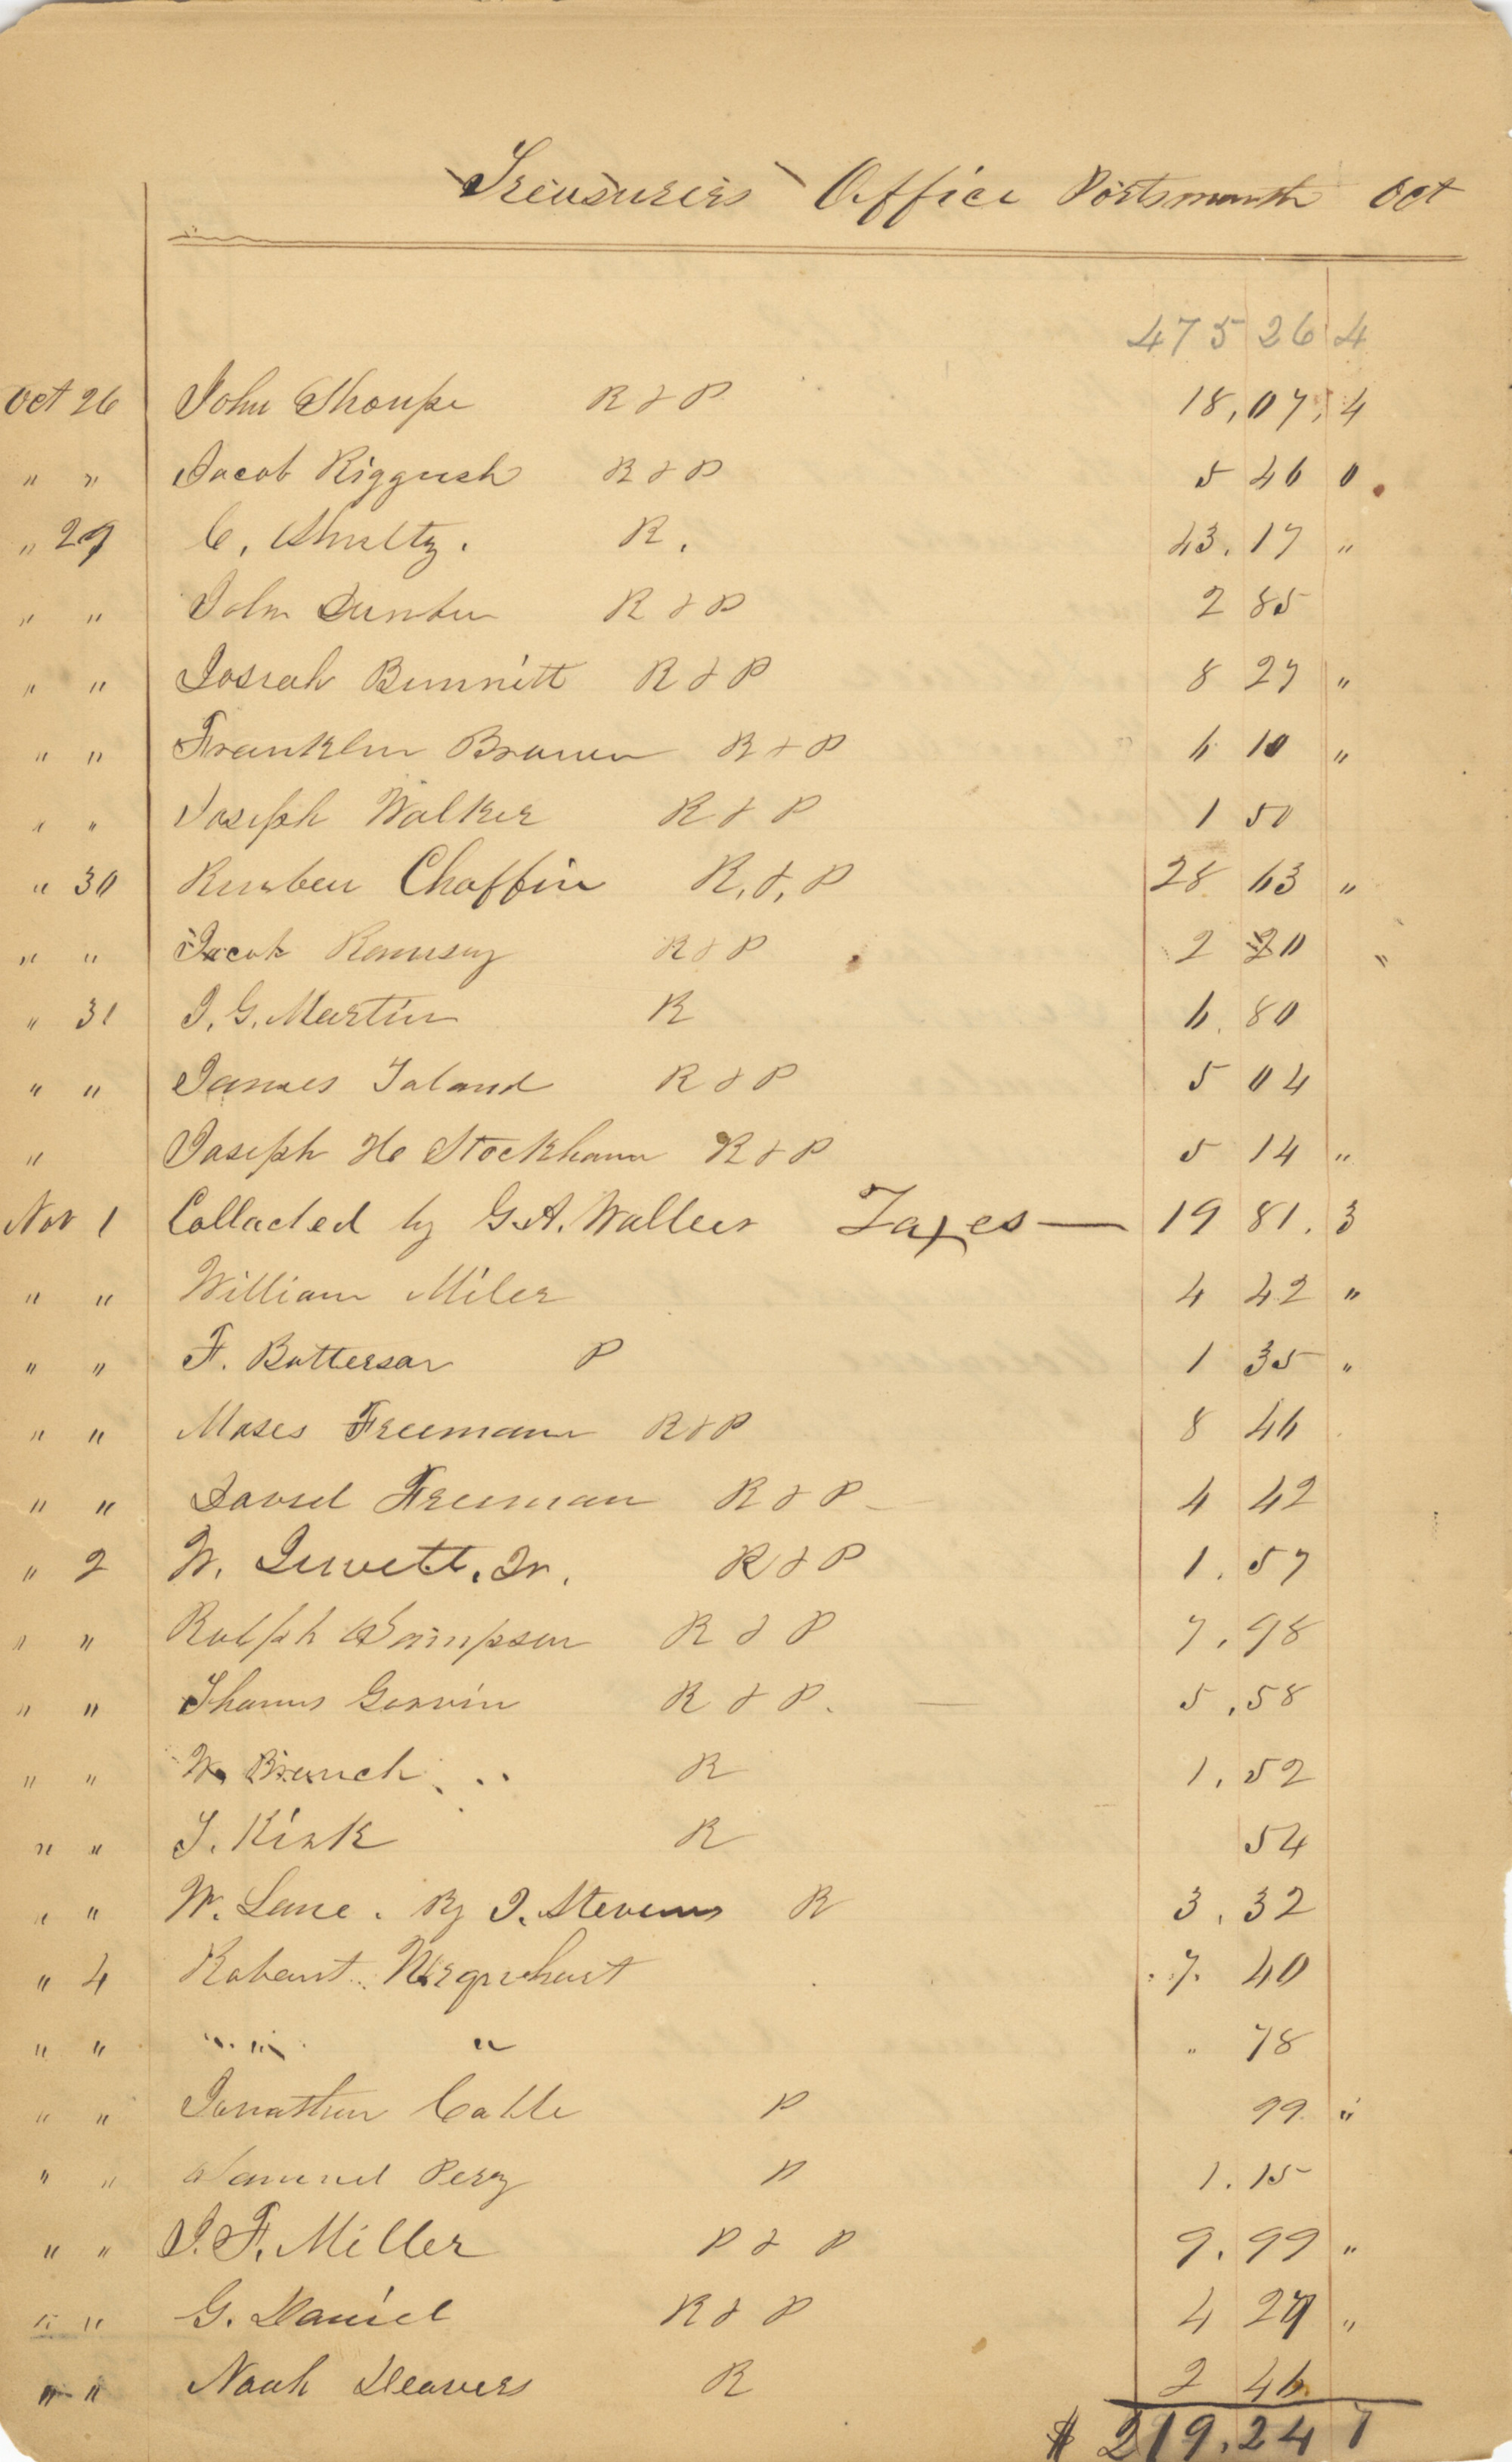 Treasurers Office Portsmouth Oct
475 26 4
Oct 26 John Shoupe R & P 18,07,4
" " Jacob Riggush R & P 5 46 0
" 29 C. Shultz. R. 43.17 "
" " John R & P 2 85
" " Josiah Bennett R & P 8 27 "
" " Franklin Brown R & P 6 10 "
" " Joseph Walker R & P 1 50
" 30 Reuben Chaffin R, &, P 28 63 "
" " Jacob Ramsey R & P 2 20
" 31 J. G. Martin R 6.80
" " James Toland R & P 5 04
" Joseph H Stockham R & P 5 14 "
Nov 1 Collacted by G.A. Waller Taxes — 19 81.3
" " William Miler 4 42 "
" " F. Battersar P 1 35 "
" " Moses Freeman R & P 8 46
" " David Freeman R & P 4 42
" 2 W. Jr. R & P 1.57
" " Ralph Sampson R & P 7.98
" " Thomas Garvin R & P. 5.58
" " W. Branch R 1.52
" " T. Kirk R 54
" " W. Lane. By J. Stevens R 3.32
" 4 Robeart 7. 40
" " " " " 78
" " Jonathan Calle P 99 "
" " Samuel Pery P 1.15
" " J. F. Miller P & P 9.99 "
" " G. Daniel R & P 4 27 "
" " Noah Deavers R 2 46
$ 219.24 1